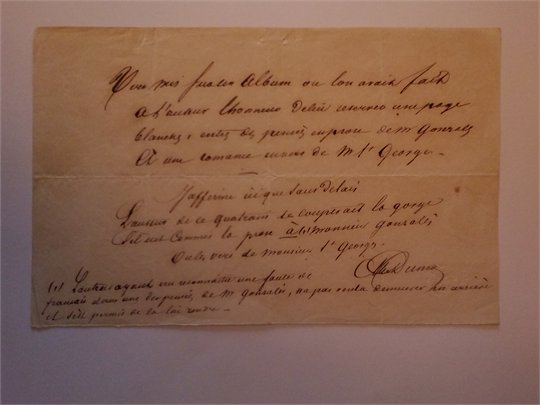 Vers mis sur un Album où l'on avait fait
à l'auteur l'honneur de lui reserver une page
blanche, entre des pensées en prose de Mr Gonzalès
et une romance en vers de Mr St Georges.
J'affirme ici que sans délais
L'auteur de ce quatrain se couperait la gorge
S'il eut commis la prose à (1) monsieur Gonzalès
Ou les vers de monsieur St Georges.
Alex Dumas
(1) L'auteur ayant cru reconnaître une faute de
français dans une des pensées, de Mr Gonzalès, n'a pas voulu demeurer en arrière
et s'est permis de la lui rendre. -